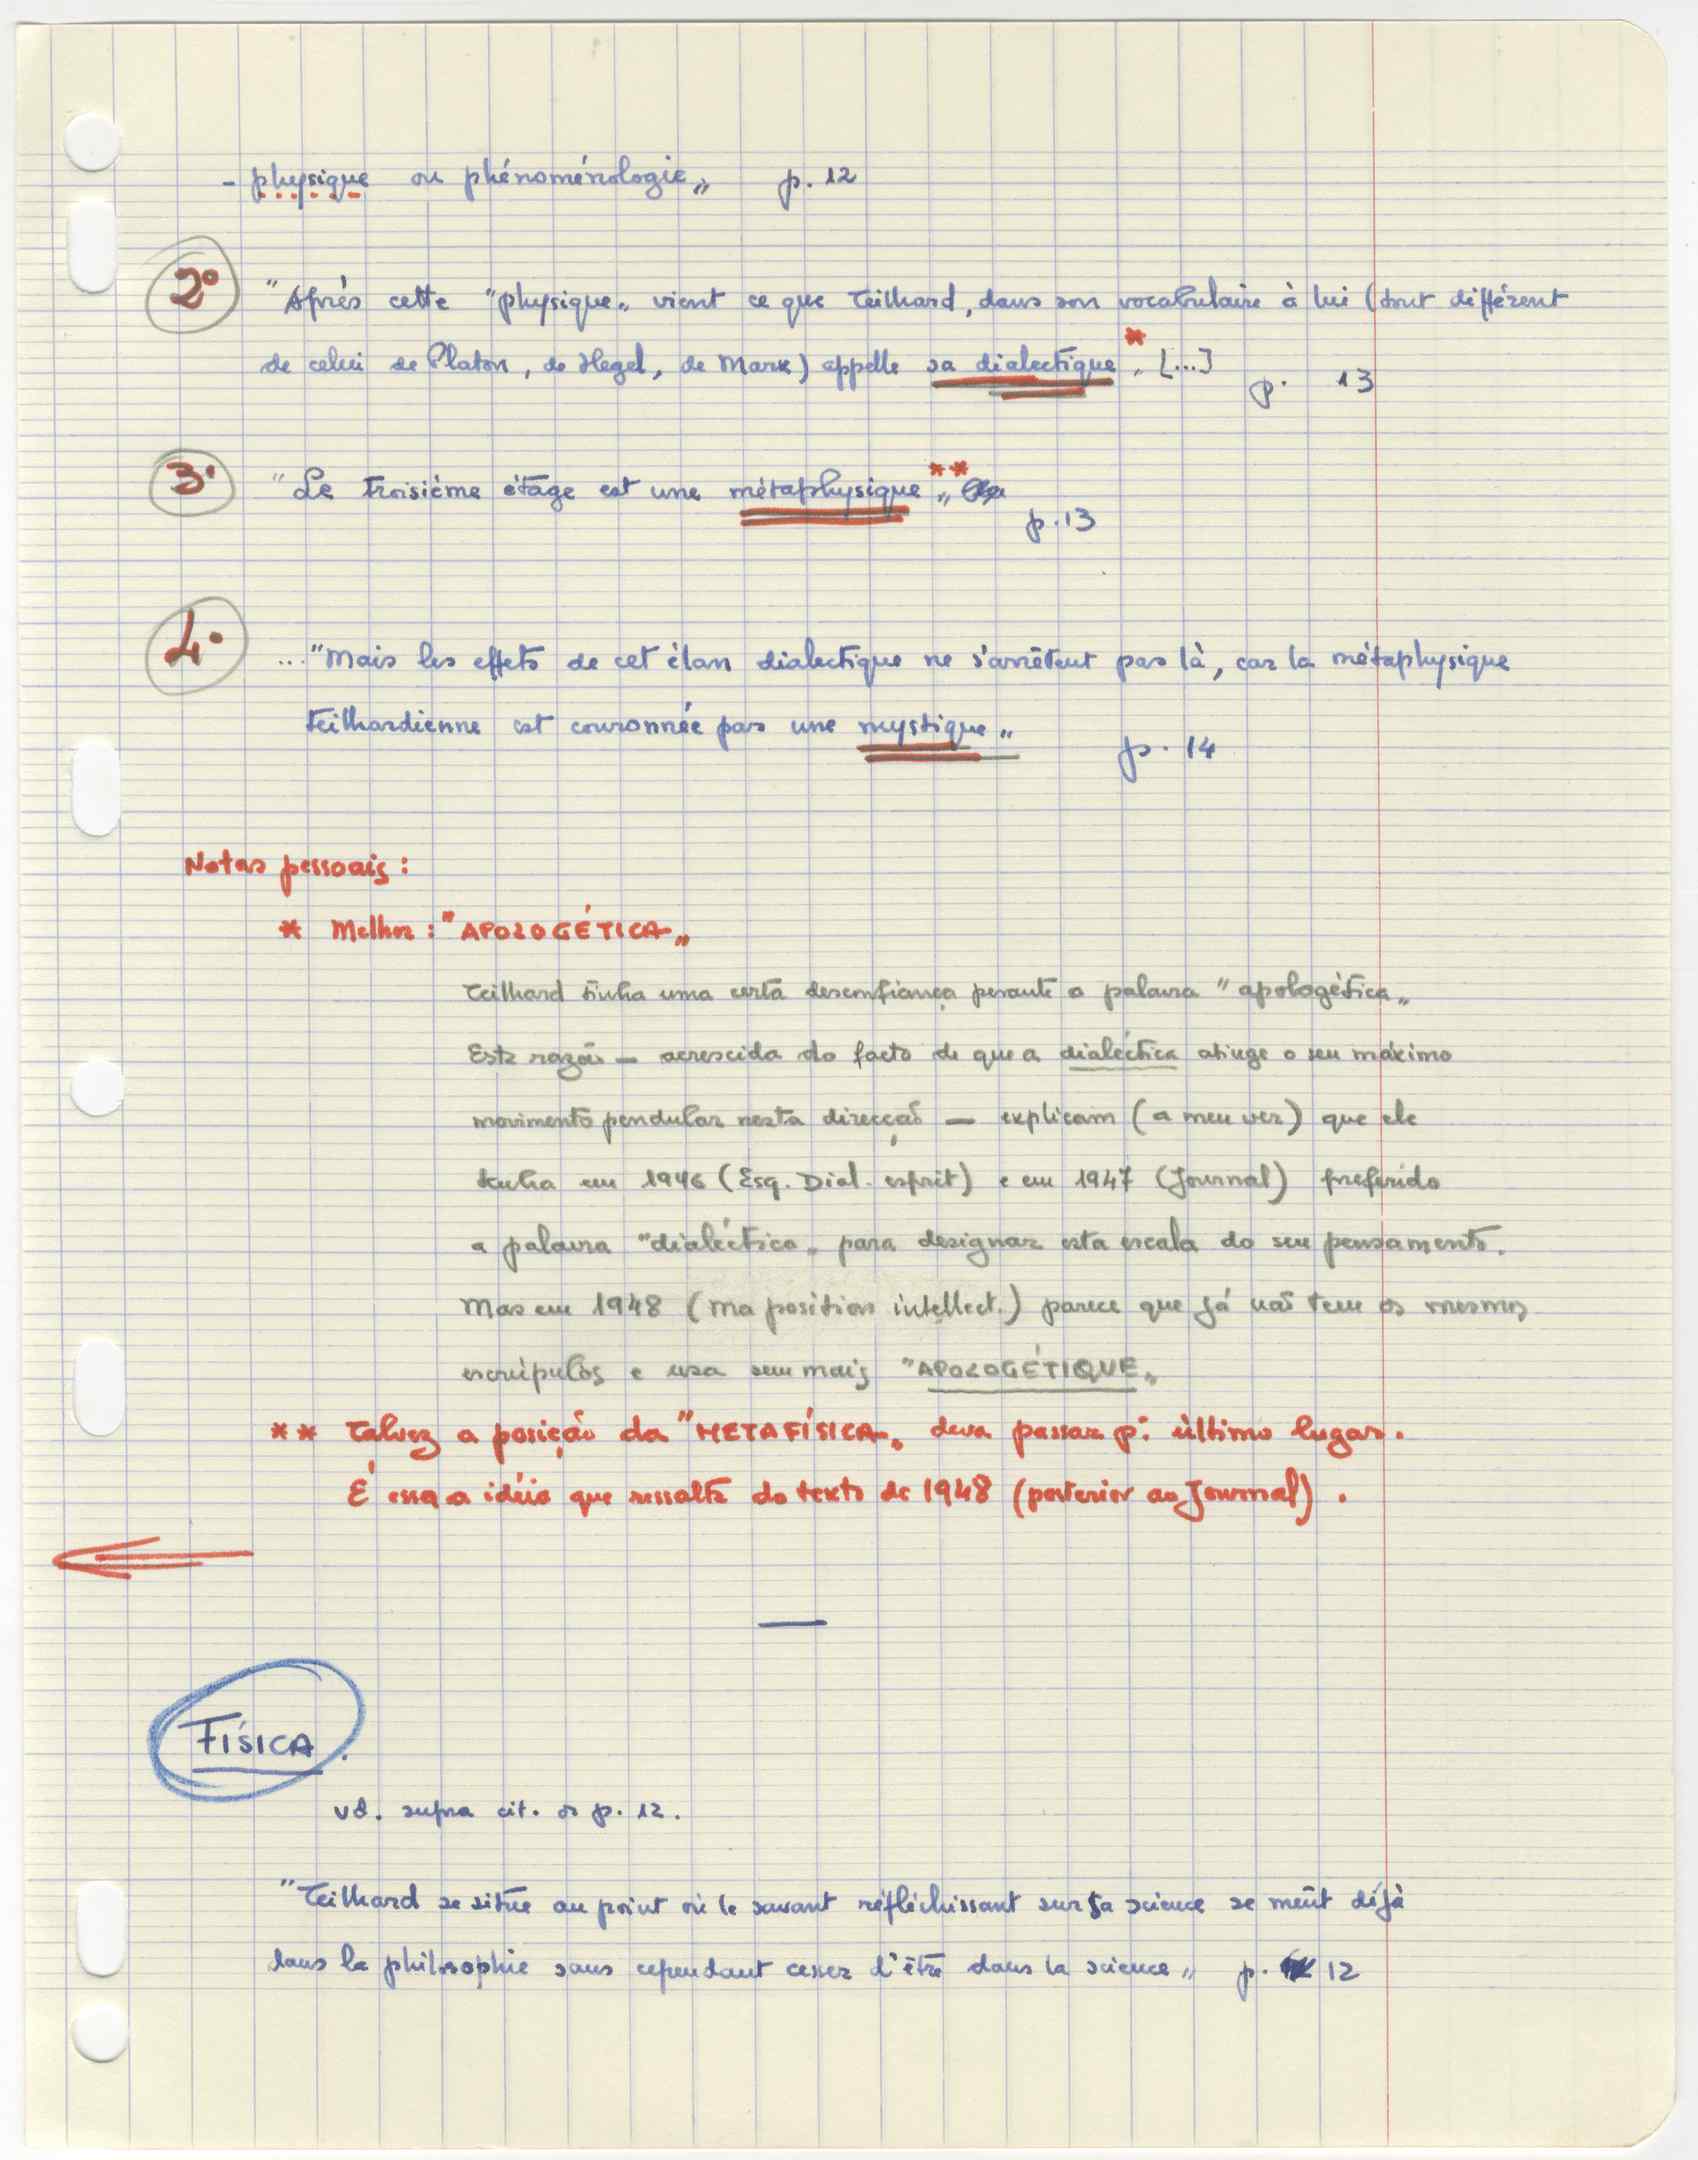 - physique ou phénoménologie„ p. 12
2º "Après cette "physique„ vient ce que Teilhard, dans son vocabulaire à lui (tout différent
de celui de Platon, de Hegel, de Marx) appelle sa dialectique * „ [...] p. 13
3º "Le troisième étage est une métaphysique ** „
p.13
4º ... "Mais les effets de cet élan dialectique ne s'arrêtent pas là, car la métaphysique
teilhardienne est couronnée par une mystique„ p. 14
Notas pessoais :
* Melhor : "APOLOGÉTICA„
Teilhard tinha uma certa desconfiança perante a palavra "apologética„
Esta razão — acrescida do facto de que a dialéctica atinge o seu máximo
movimento pendular nesta direcção — explicam (a meu ver) que ele
tenha em 1946 (Esq. Dial. esprit) e em 1947 (Journal) preferido
a palavra "dialéctica„ para designar esta escala do seu pensamento.
Mas em 1948 (Ma position intellect.) parece que já não tem os mesmos
escrúpulos e usa sem mais "APOLOGÉTIQUE„
** Talvez a posição da "METAFÍSICA„ deva passar p: último lugar.
É essa a idéia que ressalta do texto de 1948 (posterior ao Journal) .
FÍSICA.
vd. supra cit. os p. 12.
"Teilhard se situe au point où le savant réfléchissant sur sa science se meût déjà
dans la philosophie sans cependant cesser d'être dans la science„ p. 12